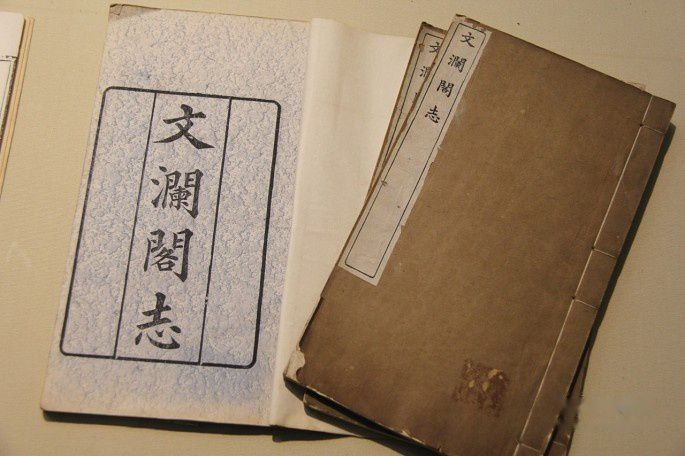 文瀾閣志
文瀾閣志
文瀾